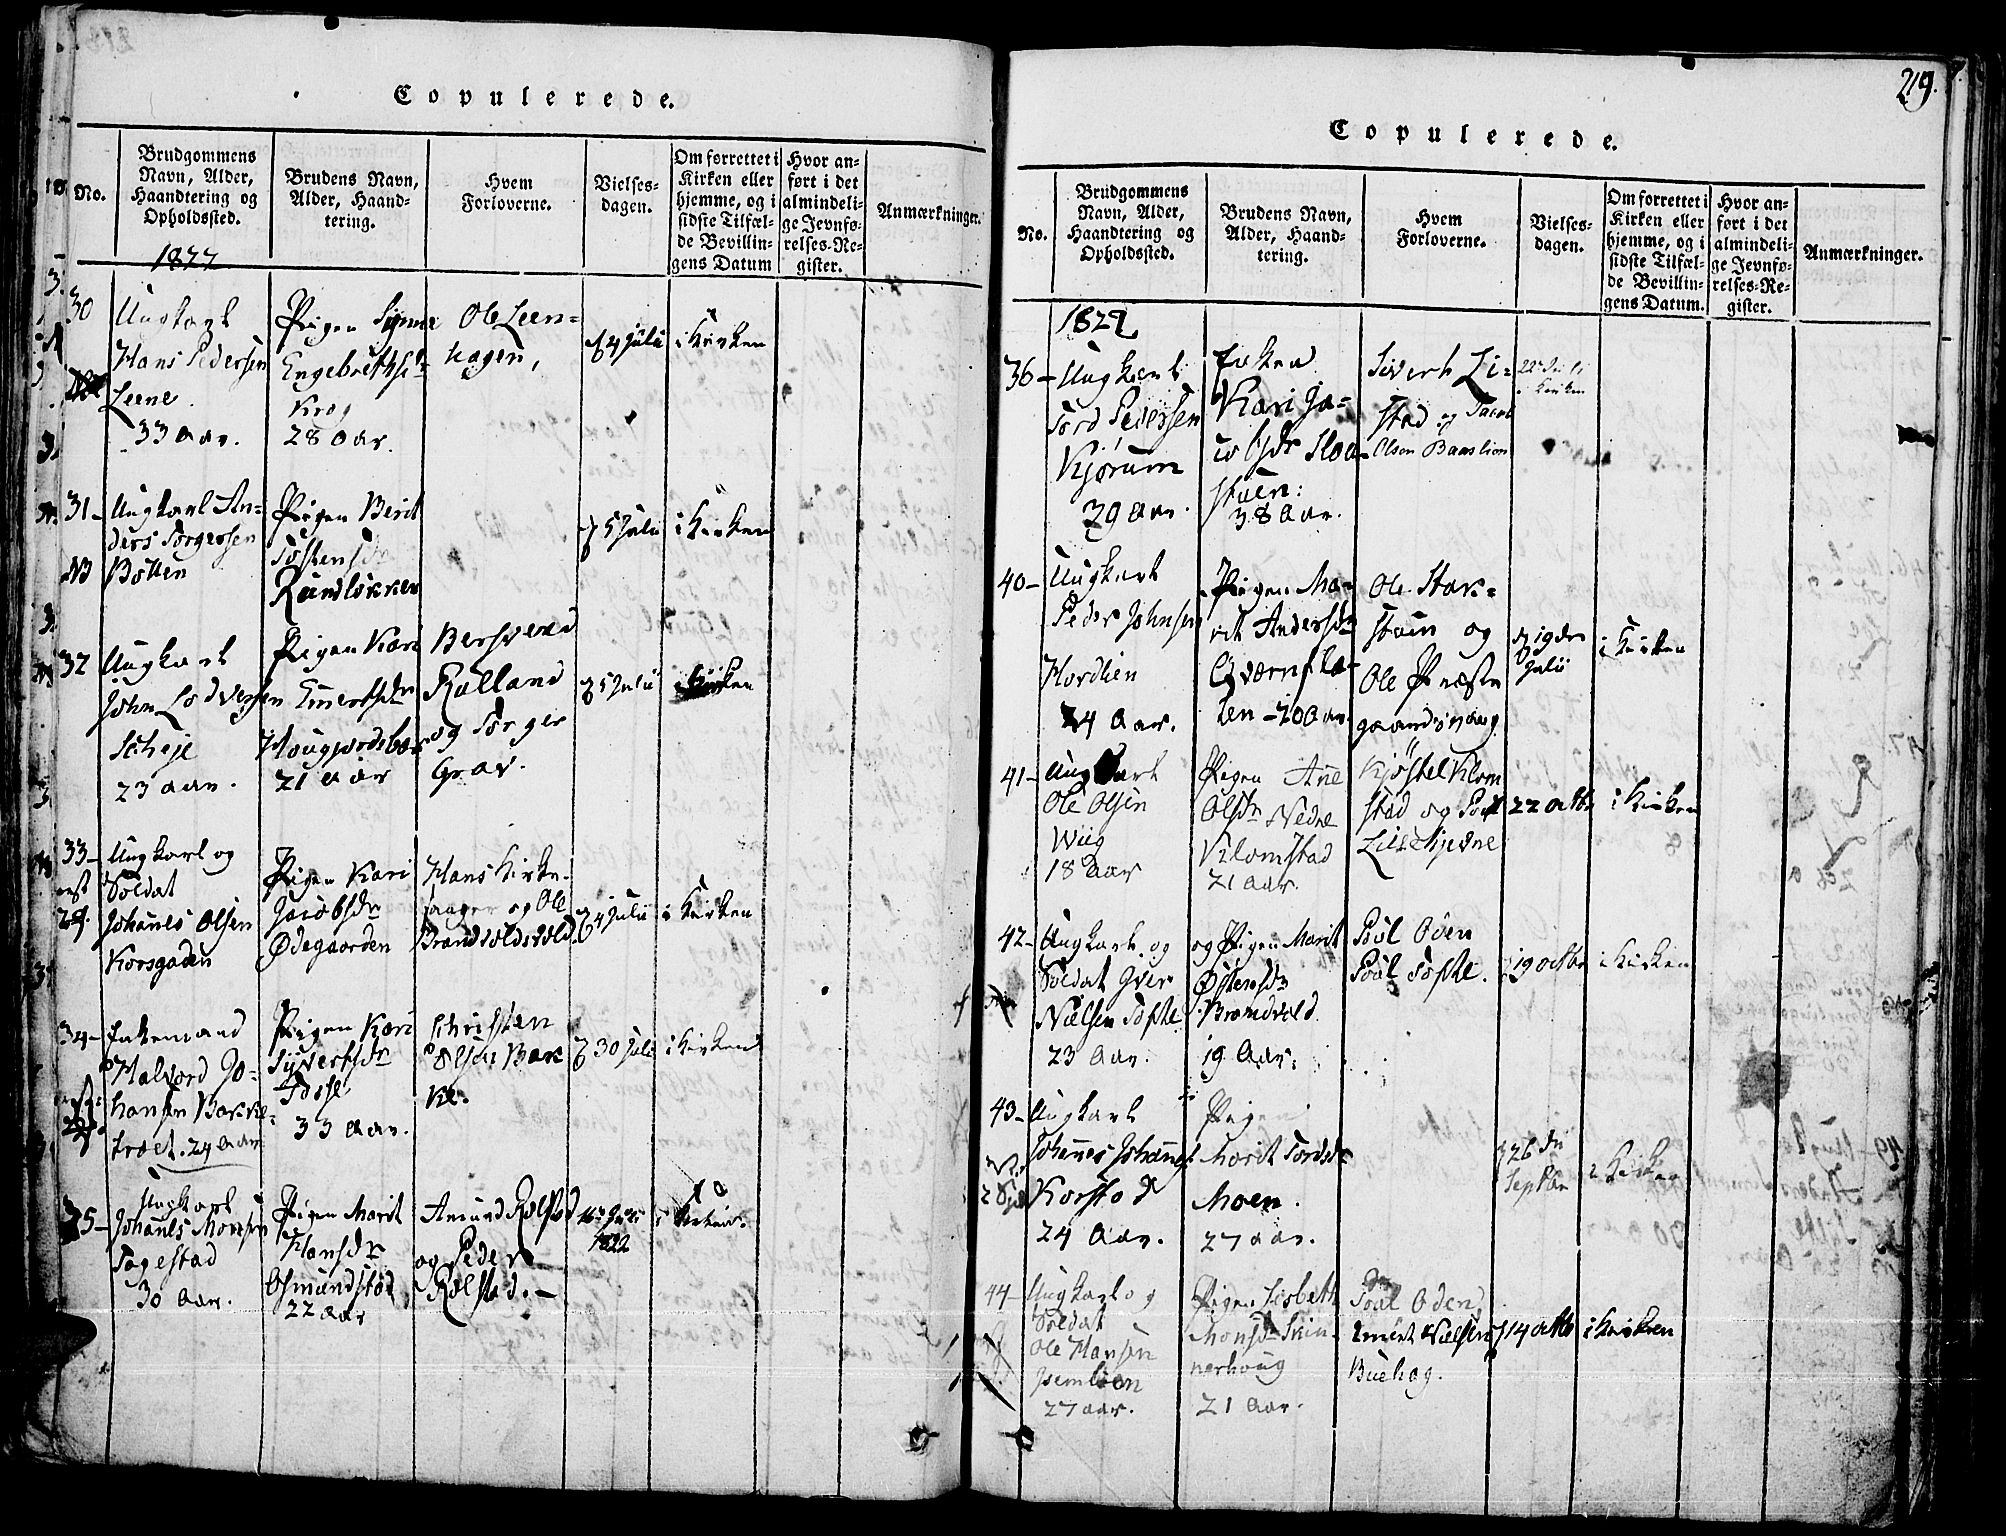 Copulerede.
No.
Brudgommens Navn, Alder, Haandtering og Opholdssted.
Brudens Navn, Alder, Haandtering.
Hvem Forloverne.
Vielsesdagen.
Om forrettet i Kirken eller hjemme, og i sidste Tilfælde Bevillingens Datum
Hvor anført i det almindelige Jevnførelses-Register.
Anmærkninger.
1822
30
Ungkarl
Hans Pedersen
Leene
33 Aar.
Pigen Synne
Engebrethsdr
Krog
28 Aar.
Ole Leen=
hagen,
4 Julii
i Kirken
31-
Ungkarl An=
ders Torgersen
Botten
Pigen Berit
Tostensdr
Rundløkken
5 Julii
i Kirken
32
Ungkarl
John Lodversen
Scheje
23 aar.
Pigen Kari
Emertsdr
21 aar
Bersvend
Rolland
og Torger
Grav.
5 Julii
i Kirken
33-
Ungkarl og
Soldat
Johanes Olsen
Korsgaden
Pigen Kari
Jacobsdr
Ødegaarden
Hans Kirke-
og Ole
Brandvoldsvold
4 Julii
i Kirken
34-
Enkemand
Halvord Jo=
hansen Bakke=
træet. 29 Aar
Pigen Kari
Syversdr
Fosse
33 Aar.
Christen
Olsen Bak
ke.
30 Juli
i Kirken
35-
Ungkarl
Johanes Monsen
Togestad
30 Aar.
Pigen Marit
Hansdr
Osmundstad
22 Aar
Amund Rolstad
og Peder
Rolstad.-
1822
i Kirken.
219.
Copulerede.
No.
Brudgommens Navn, Alder, Haandtering og Opholdssted.
Brudens Navn, Alder, Haandtering.
Hvem Forloverne.
Vielsesdagen.
Om forrettet i Kirken eller hjemme, og i sidste Tilfælde Bevillingens Datum.
Hvor anført i det almindelige Jevnførelses-Register.
Anmærkninger.
1822
36-
Ungkarl
Tord Pedersen
Kjørum
39 Aar.
Enken
Kari Ja=
cobsdr Sloa-
stuen:
38 Aar.
Sivert Li=
stad og Jacob
Olsen Baaslien
i Kirken
40-
Ungkarl
Peder Johnsen
Hordlien
24 Aar.
Pigen Ma=
rit Andersdr
Qværnflo-
ten - 20 Aar
Ole Stak=
stuin og
Ole Præste
gaardshaug.
19de
Julii
i Kirken
41-
Ungkarl
Ole Olsen
Wiig
18 Aar
Pigen Ane
Olsdr Nedre
Klomstad
21 Aar.
Kjøstel Klom
stad og Poul
Lillekjørne
22 octbr
i Kirken
42-
Ungkarl og
Soldat Iver
Nielsen Tofte
23 Aar.
og Pigen Marit
Østensdr
Brandvold
19 Aar.
Poul Oden
Poul Tofte.
19 octbr
i Kirken
43-
Ungkarl
Johannes Johans
Korstad
24 Aar.
Pigen
Marit Tordsdr
Moen.
27 aar.
26 de
Septbr
i Kirken
44-
Ungkarl og
Soldat
Ole Hansen
27 aar.
Pigen Lisbeth
Monsdr Skin-
nerhoug
21 Aar.
Poul Oden,
Emert Nielsen
Buehog.
14 octb
i Kirken